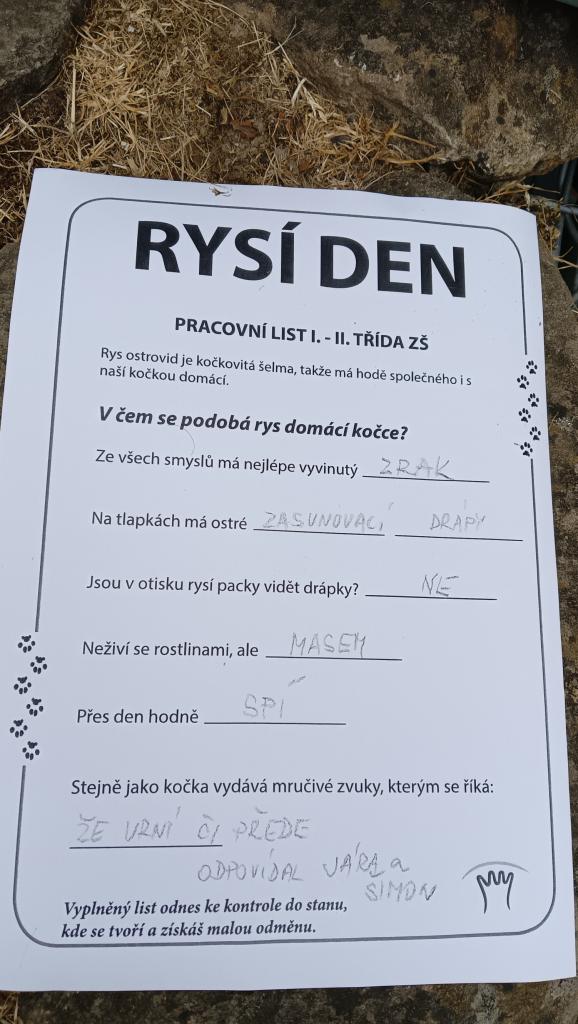 RYSÍ DEN
PRACOVNÍ LIST I. - II. TŘÍDA ZŠ
Rys ostrovid je kočkovitá šelma, takže má hodě společného i s
naší kočkou domácí.
V čem se podobá rys domácí kočce?
Ze všech smyslů má nejlépe vyvinutý ZRAK
Na tlapkách má ostré ZASUNOVACÍ DRÁPY
Jsou v otisku rysí packy vidět drápky? NE
Neživí se rostlinami, ale MASEM
Přes den hodně SPÍ
Stejně jako kočka vydává mručivé zvuky, kterým se říká:
ŽE VRNÍ ČI PŘEDE
ODPOVÍDAL JÁRA a
SIMON
Vyplněný list odnes ke kontrole do stanu,
kde se tvoří a získáš malou odměnu.